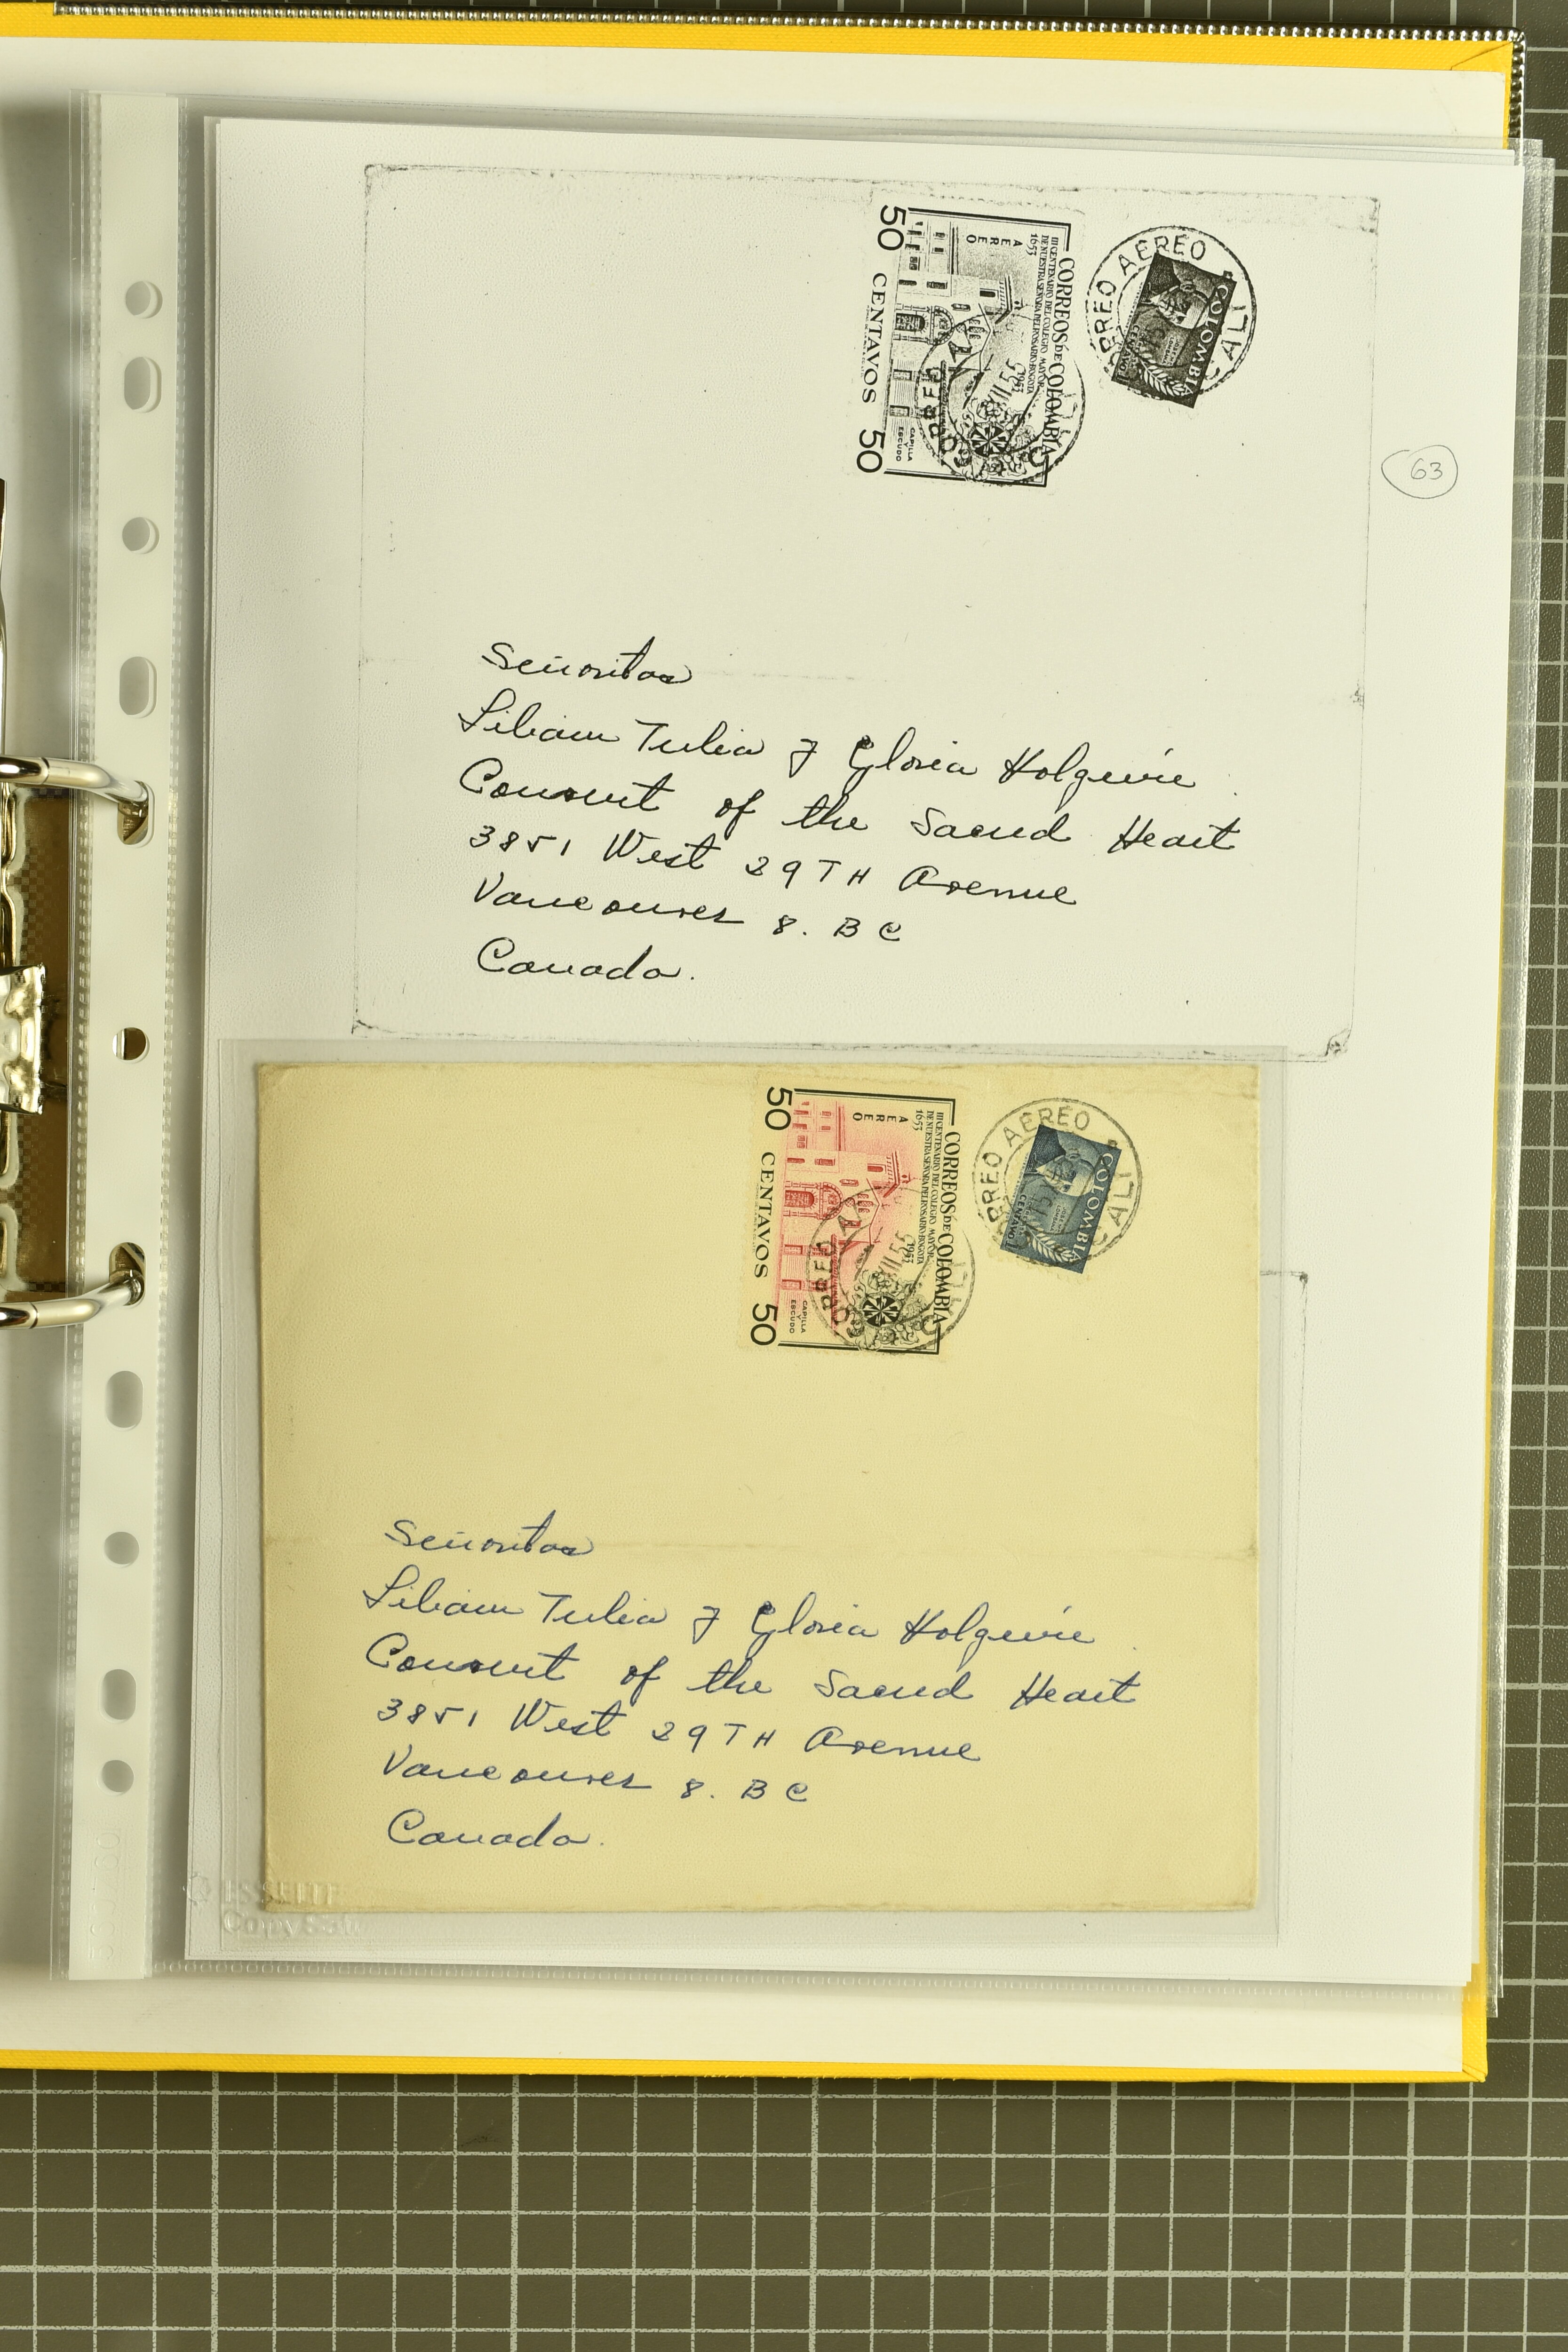 CORREO AEREO
CALI
COLOMBIA
CENTAVO
CORREOS DE COLOMBIA
III CENTENARIO DEL COLEGIO MAYOR
DE NUESTRA SEÑORA DEL ROSARIO BOGOTA
1653 1953
AEREO
CAPILLA
Y
ESCUDO
50 CENTAVOS 50
CORREO
III 55
63
Señoritas
Liliam Tulia y Gloria Holguin
Convent of the Sacred Heart
3851 West 29TH Avenue
Vancouver 8. B C
Canada.
CORREO AEREO
CALI
COLOMBIA
CENTAVO
CORREOS DE COLOMBIA
III CENTENARIO DEL COLEGIO MAYOR
DE NUESTRA SEÑORA DEL ROSARIO BOGOTA
1653 1953
AEREO
CAPILLA
Y
ESCUDO
50 CENTAVOS 50
CORREO
III 55
Señoritas
Liliam Tulia y Gloria Holguin
Convent of the Sacred Heart
3851 West 29TH Avenue
Vancouver 8. B C
Canada.
ESSELTE
CopySafe